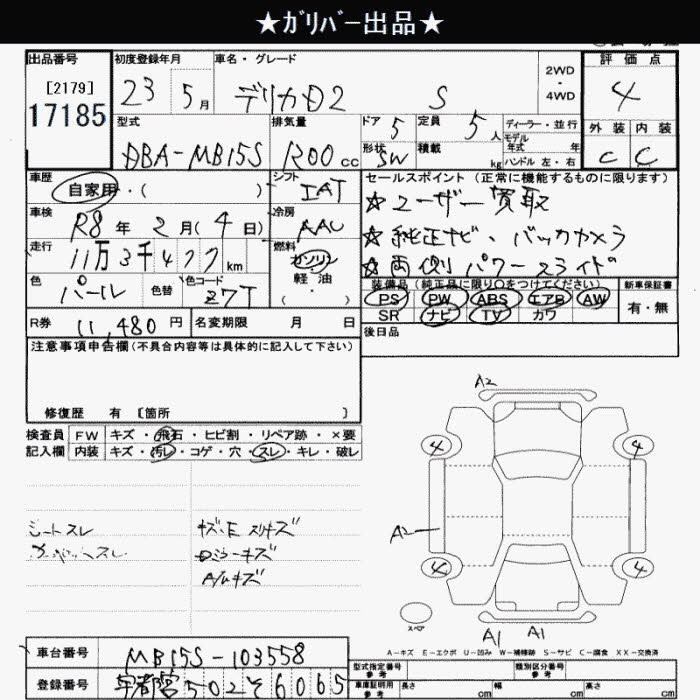 ★ｶﾞﾘﾊﾞｰ出品★
出品番号 初度登録年月 車名・グレード 2WD・4WD 評価点
[2179] 23 5月 デリカD2 S 4
17185 型式 排気量 ドア 5 定員 5人 ディーラー・並行 外装 内装
DBA-MB15S 1200cc 形状 SW 積載 kg モデル年式 年 ハンドル 左・右 C C
車歴 シフト セールスポイント (正常に機能するものに限ります)
自家用・( ) IAT ☆ユーザー買取
車検 R8年2月(4日) 冷房 AAC ☆純正ナビ、バックカメラ
走行 11万3千477km 燃料 ガソリン ☆両側パワースライド
色 パール 色替 色コード Z7T 軽油 ( )
装備品 (純正品に限り○をつけてください) 新車保証書
PS PW ABS エアB AW 有・無
SR ナビ TV カワ
R券 11,480円 名変期限 月 日 後日品
注意事項申告欄(不具合内容等は具体的に記入して下さい)
修復歴 有 [箇所 ]
検査員 FW キズ・飛石・ヒビ割・リペア跡・×要
記入欄 内装 キズ・汚レ・コゲ・穴・スレ・キレ・破レ
シートスレ キズ・E スリキズ
ミラーキズ
A/Wキズ
A2
4 4
A2
4 4
スペア
A1 A1
A-キズ E-エクボ U-凹み W-補修跡 S-サビ C-腐食 XX-交換済
車台番号 MB15S-103558 型式指定番号 参考 類別区分番号 参考
登録番号 宇都宮502そ6065 車庫証明用 参考 長さ cm 幅 cm 高さ cm